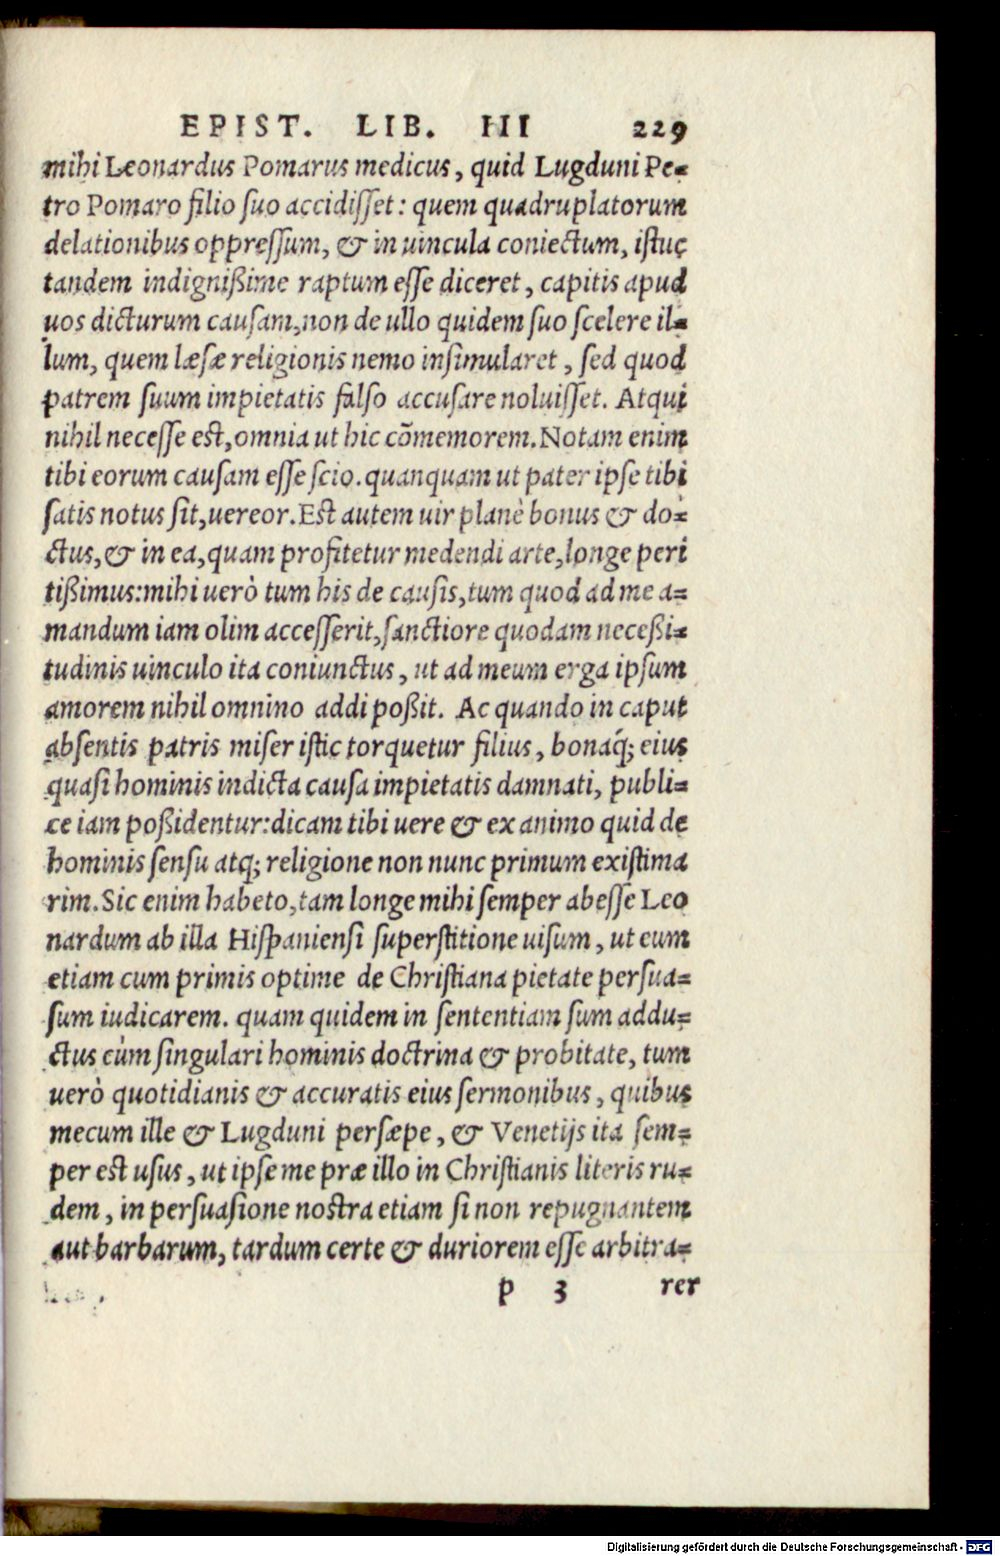 EPIST. LIB. III 229
mihi Leonardus Pomarus medicus, quid Lugduni Pe-
tro Pomaro filio ſuo accidiſſet: quem quadruplatorum
delationibus oppreſſum, & in uincula coniectum, iſtuc
tandem indignißime raptum eſſe diceret, capitis apud
uos dicturum cauſam, non de ullo quidem ſuo ſcelere il-
lum, quem læſæ religionis nemo inſimularet, ſed quod
patrem ſuum impietatis falſo accuſare noluiſſet. Atqui
nihil neceſſe eſt, omnia ut hic cōmemorem. Notam enim
tibi eorum cauſam eſſe ſcio. quanquam ut pater ipſe tibi
ſatis notus ſit, uereor. Eſt autem uir planè bonus & do-
ctus, & in ea, quam profitetur medendi arte, longe peri
tißimus: mihi uerò tum his de cauſis, tum quod ad me a-
mandum iam olim acceſſerit, ſanctiore quodam neceßi-
tudinis uinculo ita coniunctus, ut ad meum erga ipſum
amorem nihil omnino addi poßit. Ac quando in caput
abſentis patris miſer iſtic torquetur filius, bonaq́; eius
quaſi hominis indicta cauſa impietatis damnati, publi-
ce iam poßidentur: dicam tibi uere & ex animo quid de
hominis ſenſu atq; religione non nunc primum exiſtima
rim. Sic enim habeto, tam longe mihi ſemper abeſſe Leo
nardum ab illa Hiſpanienſi ſuperſtitione uiſum, ut eum
etiam cum primis optime de Chriſtiana pietate perſua-
ſum iudicarem. quam quidem in ſententiam ſum addu-
ctus cùm ſingulari hominis doctrina & probitate, tum
uerò quotidianis & accuratis eius ſermonibus, quibus
mecum ille & Lugduni perſæpe, & Venetijs ita ſem-
per eſt uſus, ut ipſe me præ illo in Chriſtianis literis ru-
dem, in perſuaſione noſtra etiam ſi non repugnantem
aut barbarum, tardum certe & duriorem eſſe arbitra-
p 3 rer
Digitalisierung gefördert durch die Deutsche Forschungsgemeinschaft - DFG